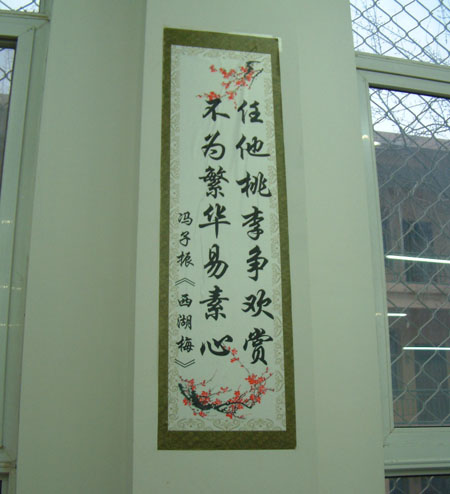 任他桃李争欢赏
不为繁华易素心
冯子振《西湖梅》